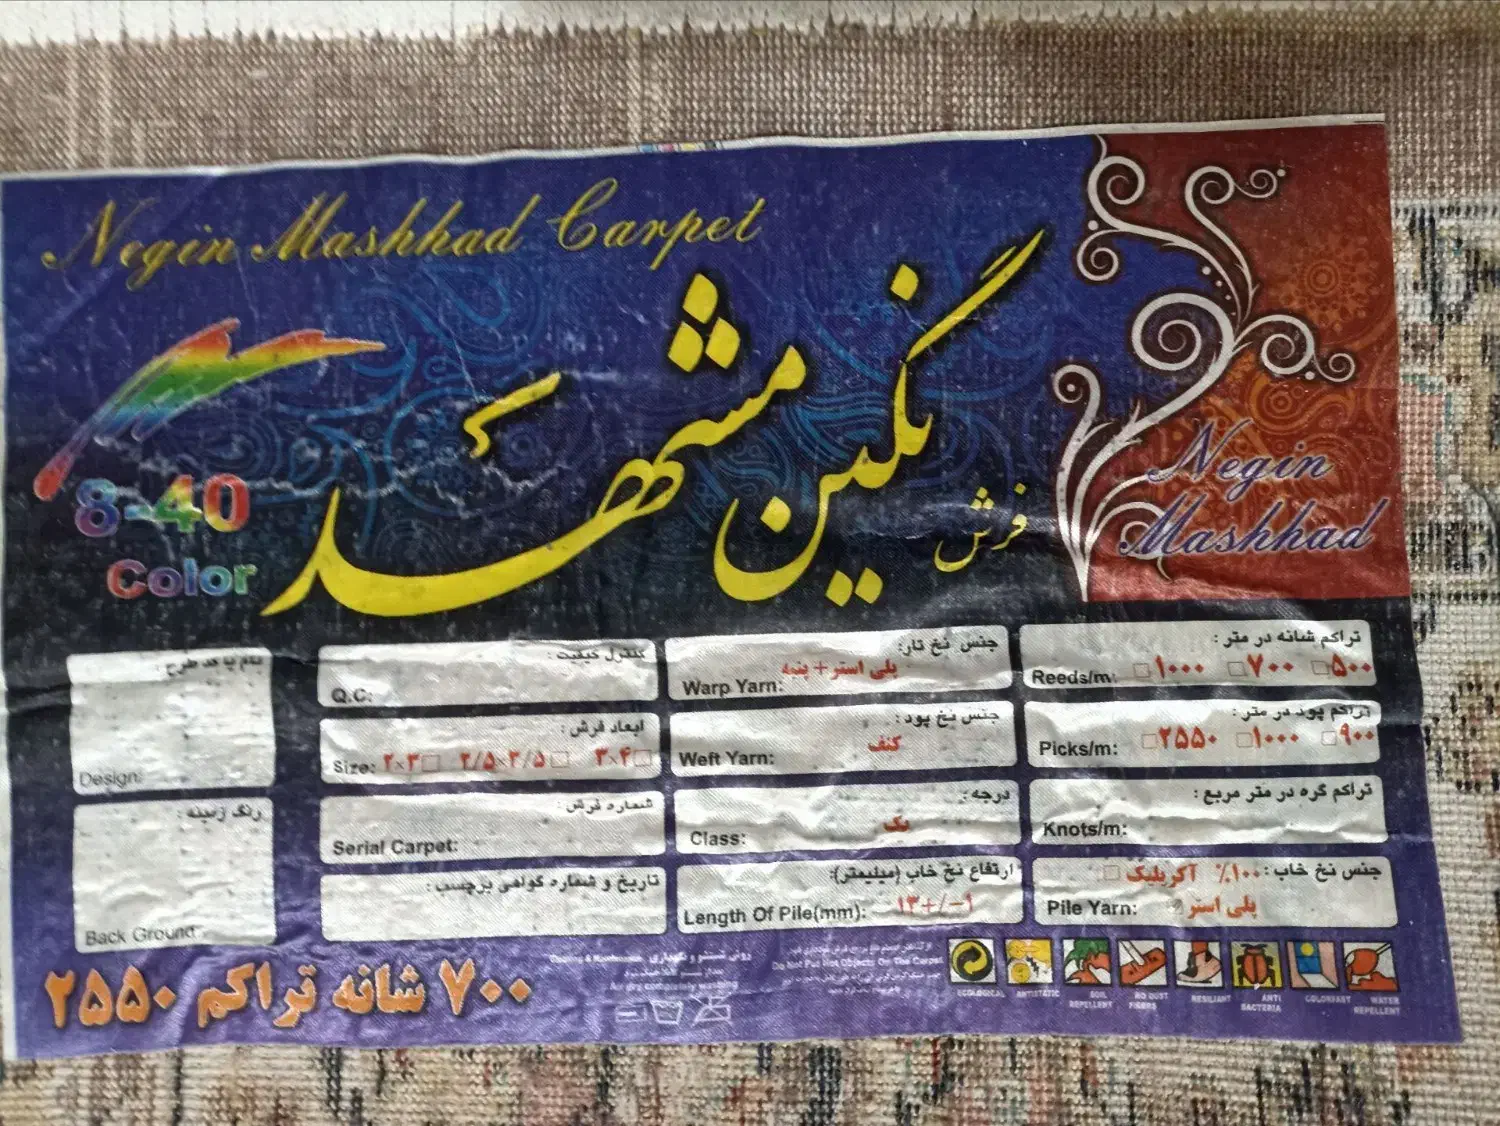 Negin Mashhad Carpet
فرش نگین مشهد
8-40
Color
Negin
Mashhad
تراکم شانه در متر :
Reeds/m: □۱۰۰۰ □۷۰۰ □۵۰۰
تراکم پود در متر :
Picks/m: □۲۵۵۰ □۱۰۰۰ □۹۰۰
تراکم گره در متر مربع :
Knots/m:
جنس نخ خاب : ۱۰۰٪ آکریلیک □
Pile Yarn: پلی استر
جنس نخ تار:
Warp Yarn: پلی استر + پنبه
جنس نخ پود :
Weft Yarn: کنف
درجه :
Class: یک
ارتفاع نخ خاب (میلیمتر):
Length Of Pile(mm): ۱۳+/-۱
کنترل کیفیت :
Q.C:
ابعاد فرش :
Size: ۲×۳□ ۲/۵×۳/۵□ ۳×۴□
شماره فرش :
Serial Carpet:
تاریخ و شماره گواهی برچسب :
نام یا کد طرح :
Design:
رنگ زمینه :
Back Ground
۷۰۰ شانه تراکم ۲۵۵۰
روش شستشو و نگهداری
Air dry completely washing
Do Not Put Hot Objects On The Carpet
ECOLOGICAL
ANTISTATIC
SOIL REPELLENT
NO DUST FIBERS
RESILIANT
ANTI BACTERIA
COLORFAST
WATER REPELLENT